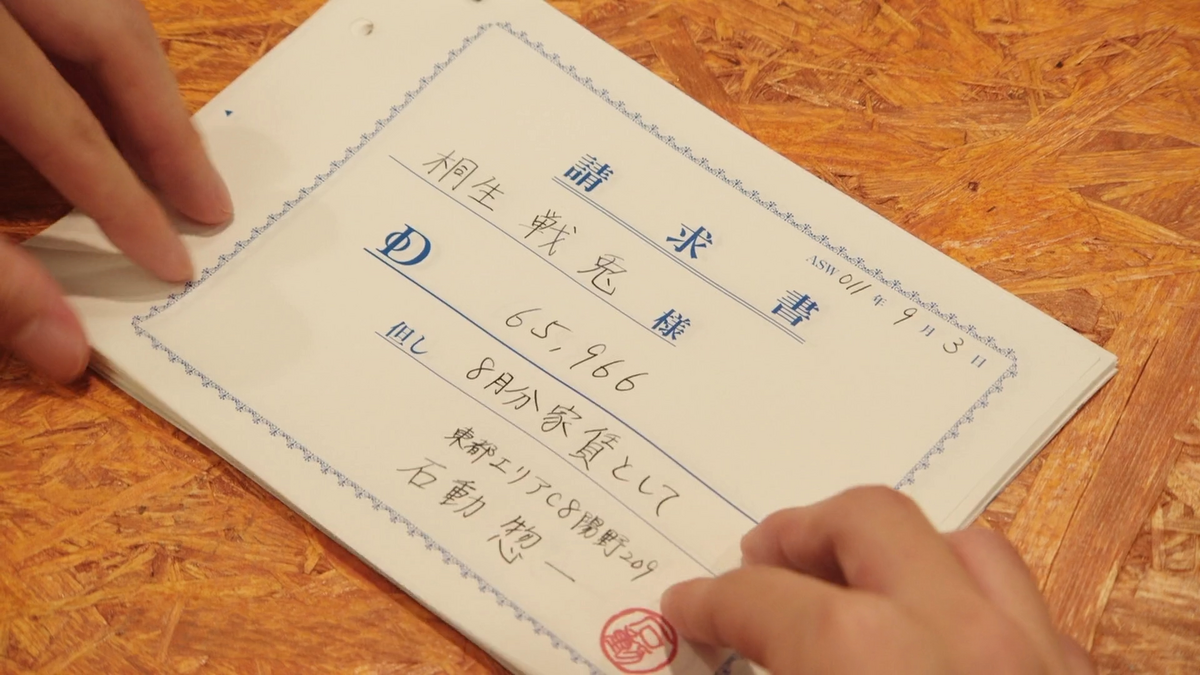 請求書
ASW 011年 9月 3日
桐生 戦兎 様
65,966
但し 8月分家賃として
東都エリアC8陽野209
石動 惣一
石動